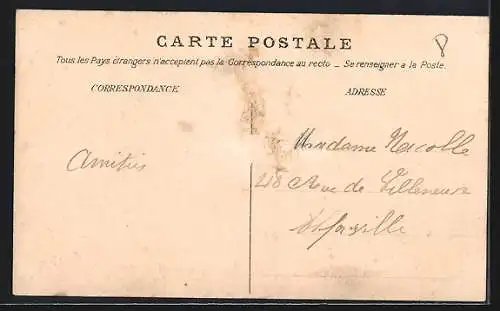 CARTE POSTALE
Tous les Pays étrangers n'acceptent pas la Correspondance au recto _ Se renseigner a la Poste.
CORRESPONDANCE
ADRESSE
Amitiés
Madame Nacolle
48 Rue de Villeneuve